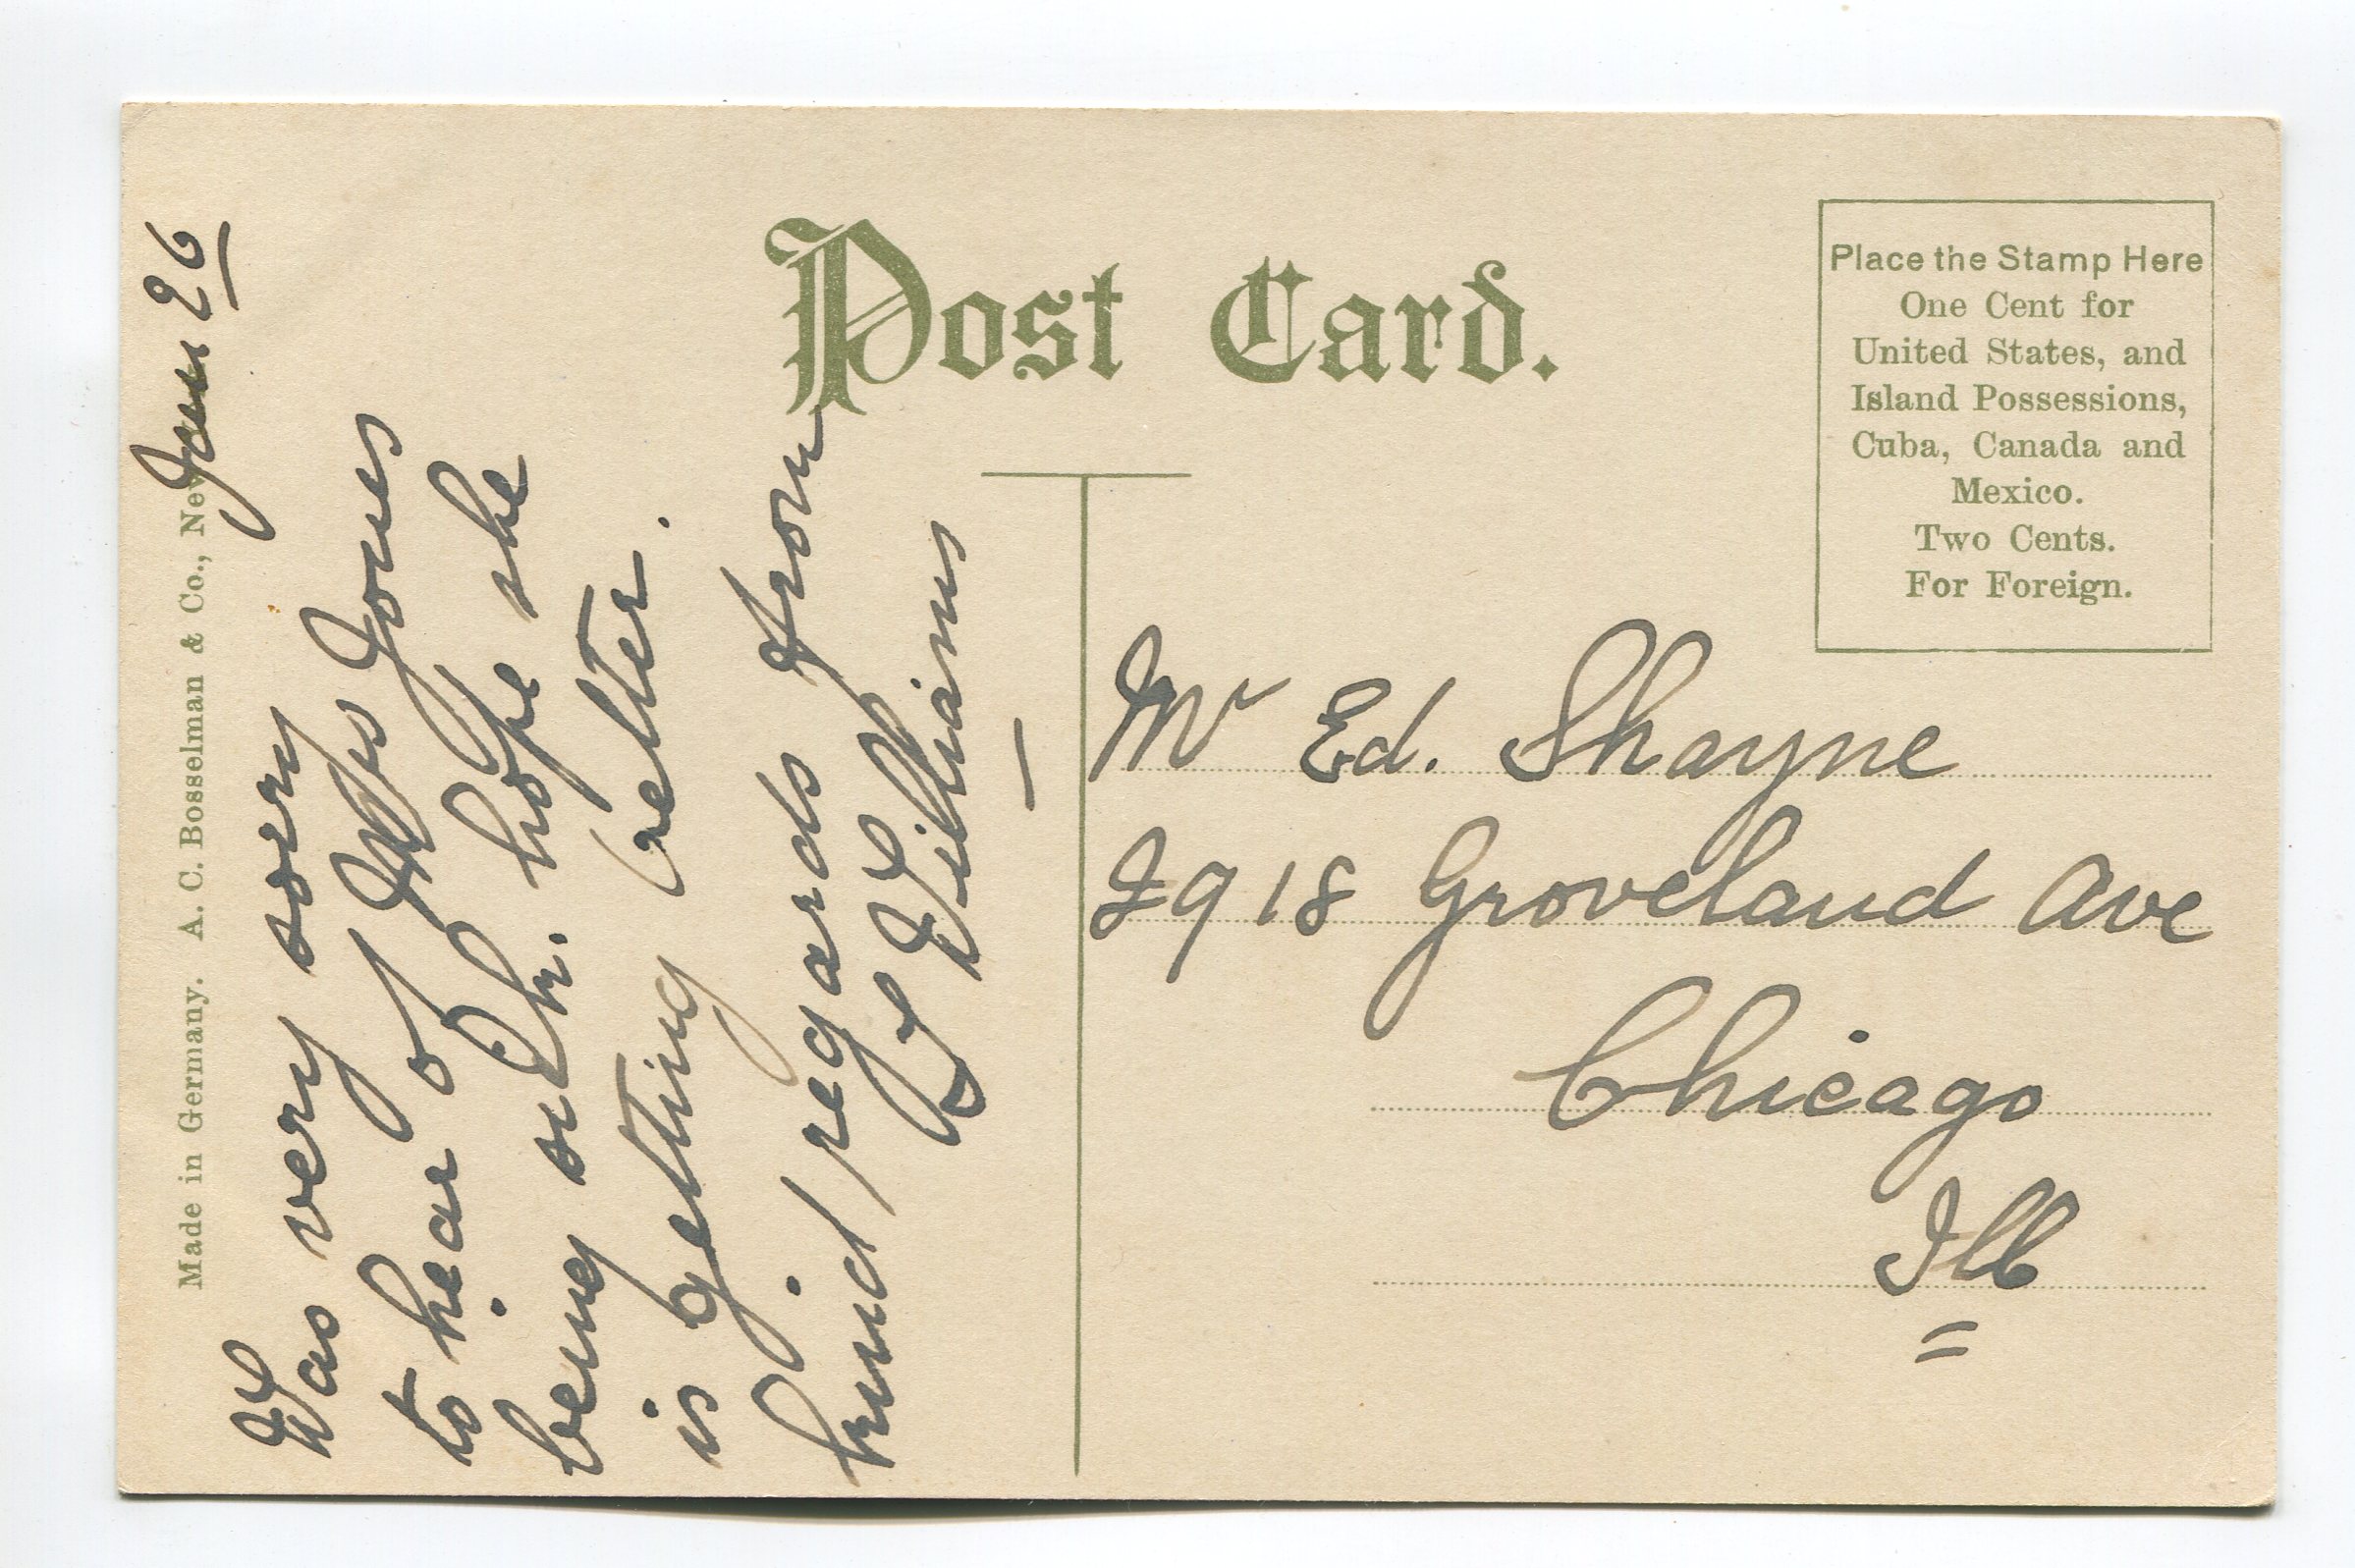 Post Card.
Place the Stamp Here
One Cent for
United States, and
Island Possessions,
Cuba, Canada and
Mexico.
Two Cents.
For Foreign.
Made in Germany. A. C. Bosselman & Co., New
Jan 26
Was very sorry
to hear of Mrs Jones
being sick. hope she
is getting better.
kind regards from
Williams
Mr Ed. Shayne
2918 Groveland Ave
Chicago
Ills